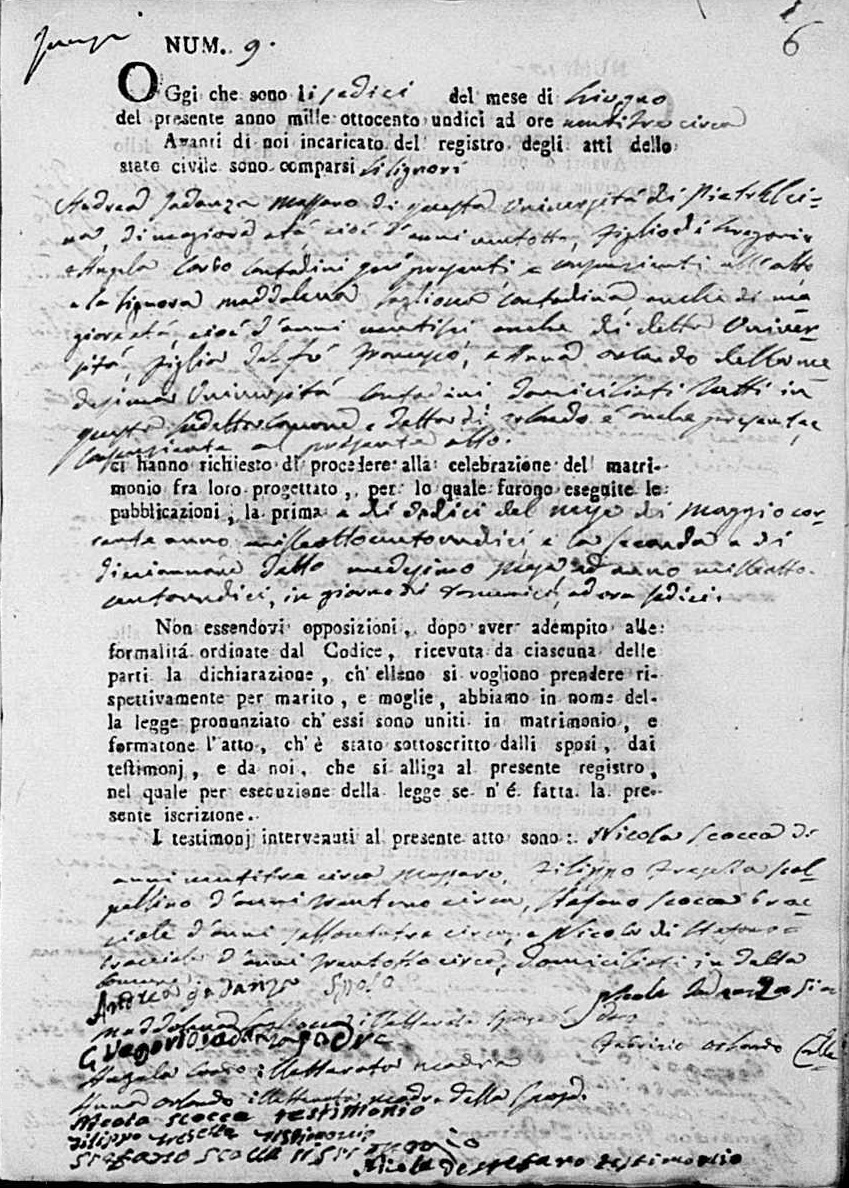 6
NUM. 9.
OGgi che sono li sedici del mese di Giugno
del presente anno mille ottocento undici ad ore ventitre circa
Avanti di noi incaricato del registro degli atti dello
stato civile sono comparsi li signori
Andrea Iadanza Massaro di questa Università di Pietrelci-
na, di maggiore età, cioè d'anni ventotto, figlio di Gregorio
e Angela Cardo Contadini qui presenti e consenzienti all'atto
e la Signora Maddalena contadina anche di ma
giore età, cioè d'anni ventisei anche di detta Univer-
sità, figlia del fù Francesco, e Anna Orlando della me
desima Università Contadini domiciliati tutti in
questo sudetto Comune e detta di Orlando è anche presente, e
consenziente al presente atto.
ci hanno richiesto di procedere alla celebrazione del matri-
monio fra loro progettato, per lo quale furono eseguite le
pubblicazioni, la prima a dì dodici del mese di Maggio cor-
rente anno milleottocentoundici e la seconda a dì
diciannove detto medesimo mese ed anno milleotto-
centoundici, in giorno di domenica, ad ora sedici.
Non essendovi opposizioni, dopo aver adempito alle
formalitá ordinate dal Codice, ricevuta da ciascuna delle
parti la dichiarazione, ch'elleno si vogliono prendere ri-
spettivamente per marito, e moglie, abbiamo in nome del-
la legge pronunziato ch'essi sono uniti in matrimonio, e
formatone l'atto, ch'è stato sottoscritto dalli sposi, dai
testimonj, e da noi, che si alliga al presente registro,
nel quale per esecuzione della legge se n'é fatta la pre-
sente iscrizione.
I testimonj intervenuti al presente atto sono: Nicola Scocca di
anni ventitre circa Massaro, Filippo Fresella Scal-
pellino d'anni trentuno circa, Stefano Scocca brac-
ciale d'anni settantatre circa, e Nicola di Stefano
bracciale d'anni trentotto circa, domiciliati in detta
Comune
Andrea Iadanza Sposo
Nicola Iadanza Sin
daco
Maddalena illetterata sposa
Gregorio Iadanza padre
Fabrizio Orlando Cancelle
Angela Cardo illetterata madre
Anna Orlando illetterata madre della Sposa.
Nicola Scocca testimonio
Filippo Fresella testimonio
Stefano Scocca testimonio
Nicola de Stefano testimonio